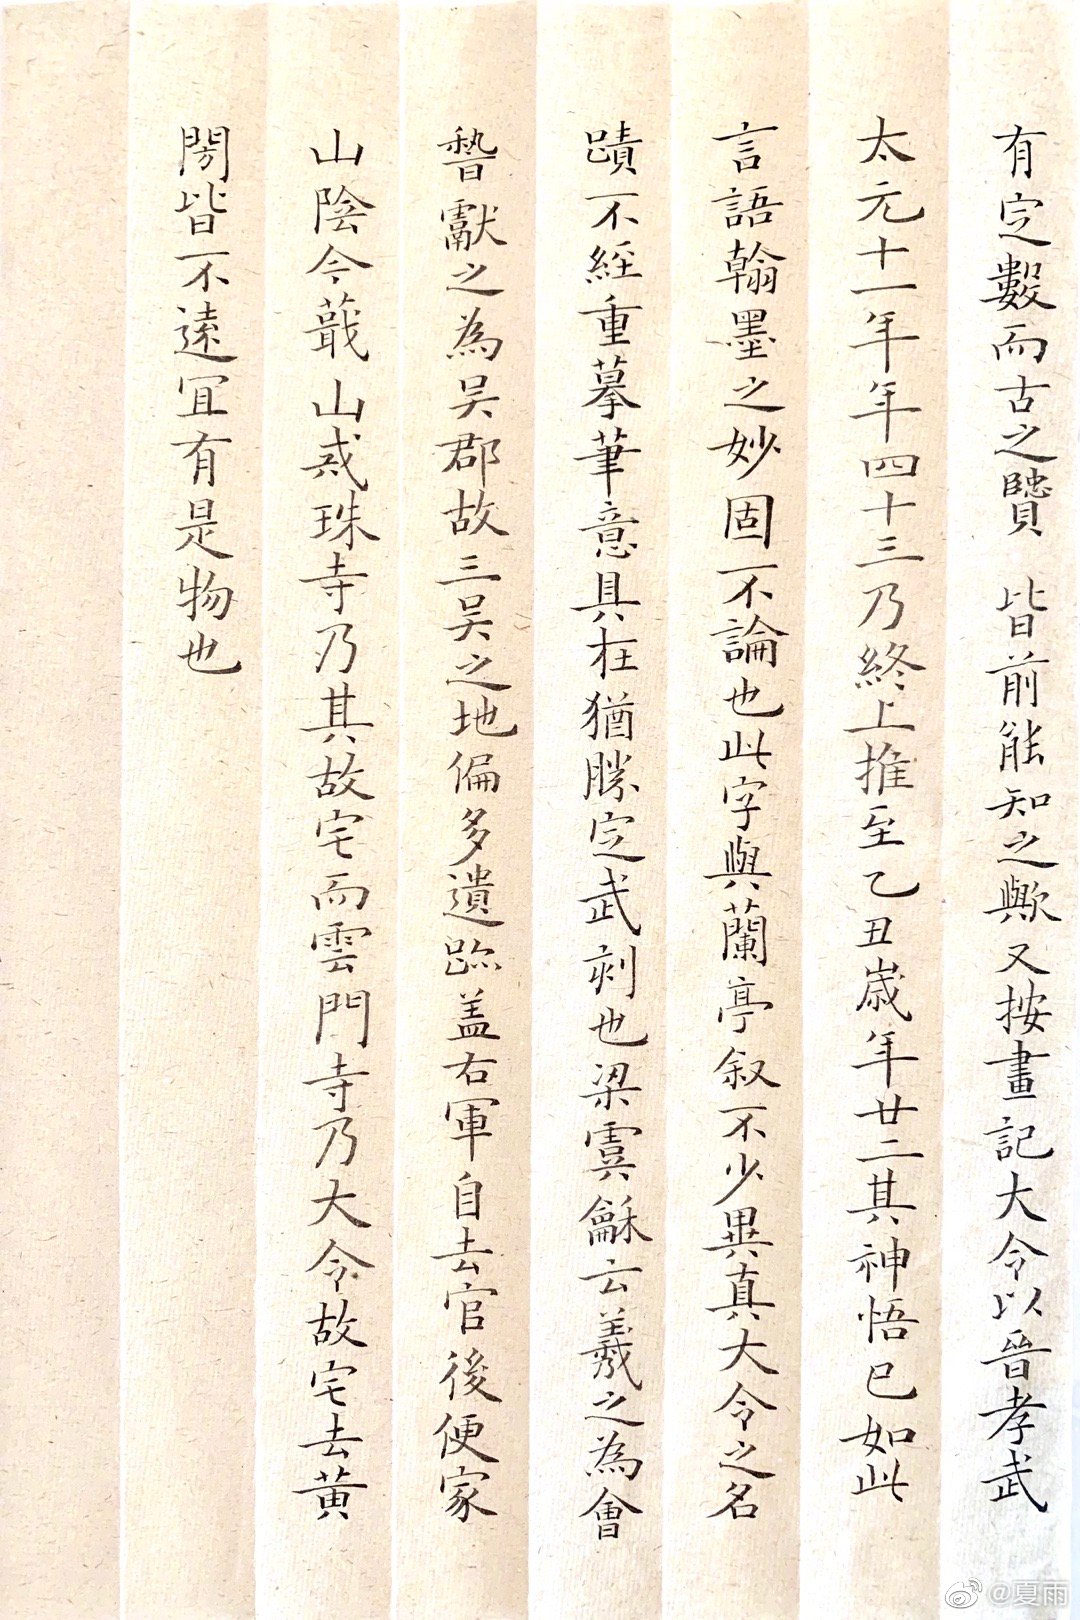 有定數而古之賢皆前能知之歟又按畫記大令以晉孝武
太元十一年年四十三乃終上推至乙丑歲年廿二其神悟已如此
言語翰墨之妙固不論也此字與蘭亭叙不少異真大令之名
蹟不經重摹筆意具在猶勝定武刻也梁虞龢云羲之為會
嵇獻之為吴郡故三吴之地偏多遺跡盖右軍自去官後便家
山陰今蕺山戒珠寺乃其故宅而雲門寺乃大令故宅去黄
閍皆不遠宜有是物也
@夏雨